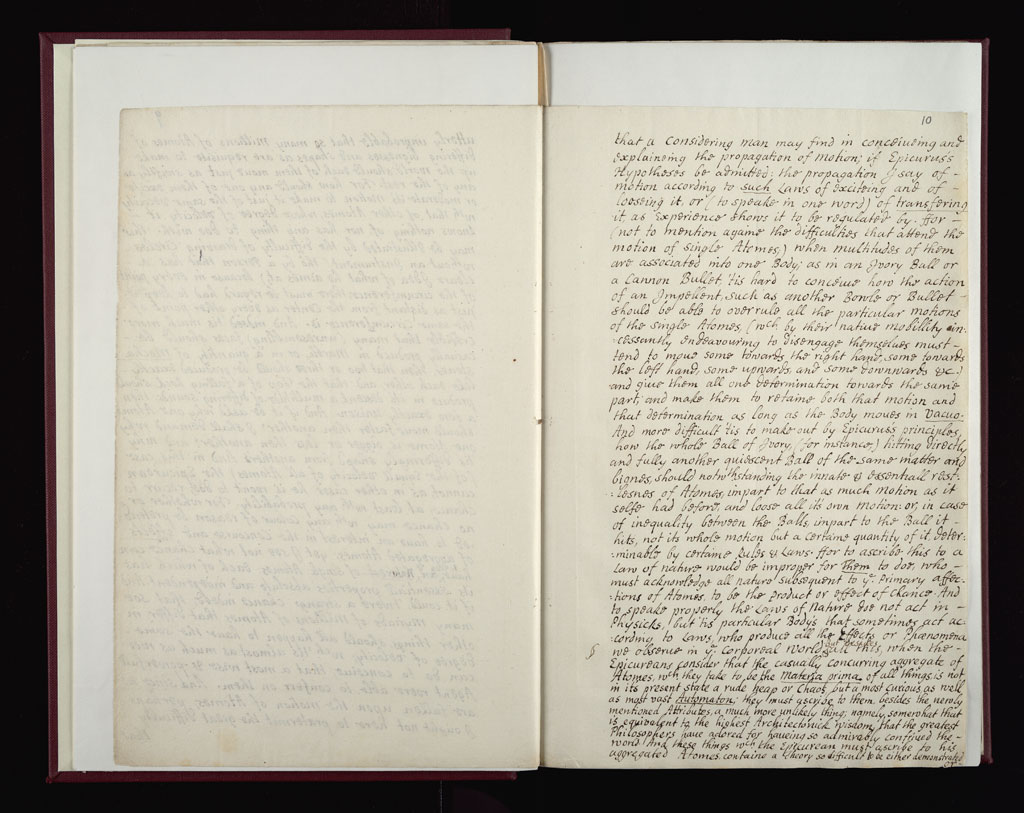 10
that a Considering man may find in conceiveing and
explaineing the propagation of Motion; if Epicurus's
Hypotheses be admitted: the propagation I say of -
motion according to such Laws of exciteing and of -
looseing it, or (to speake in one word) of transfering
it as Experience shows it to be regulated by. ffor -
(not to mention againe the difficulties that attend the
motion of single Atomes,) when multitudes of them
are associated into one Body; as in an Ivory Ball or
a Cannon Bullet, 'tis hard to conceive how the action
of an Impellent, such as another Bowle or Bullet -
should be able to overrule all the particular motions
of the single Atomes, (wch by their native mobillity in-
:cessantly endeavouring to disengage themselves must -
tend to move some towards the right hand, some towards
the left hand, some upwards, and some downwards &c.)
and give them all one determination towards the same
part; and make them to retaine both that motion and
that determination as long as the Body moves in vacuo.
And more difficult 'tis to make out by Epicurus's principles,
how the whole Ball of Ivory, (for instance,) hitting directly
and fully another quiescent Ball of the same matter and
bignes, should notwthstanding the innate & essentiall rest-
:lesnes of Atomes, impart to that as much motion as it
selfe had before, and loose all it's own motion: or, in case
of inequality between the Balls, impart to the Ball it -
hits, not its whole motion but a certaine quantity of it, deter:
:minable by certaine Rules & Laws. ffor to ascribe this to a
Law of nature would be improper for Them to doe, who -
must acknowledge all nature subsequent to ye Primary affec-
:tions of Atomes, to be the Product or effect of Chance. And
to speake properly the Laws of Nature doe not act in -
Physicks, but 'tis particular Body's that sometimes act ac:
:cording to Laws, who produce all the Effects or Phænomena
we observe in ye Corporeal world. all this, when the -
Epicureans consider that the casually concurring aggregate of
Atomes, wch they take to be the Materia prima of all things is not
in its present state a rude heap or Chaos, but a most curious as well
as most vast Automaton; they must ascribe to them besides the newly
mentioned Attributes, a much more unlikely thing; namely, somewhat that
is equivalent to the highest Architectonick Wisdom, that the greatest
Philosophers have adored for haveing so admirably contrived the -
world. And these things wch the Epicurean must ascribe to his
aggregated Atomes, containe a Theory so difficult to be either demonstrated